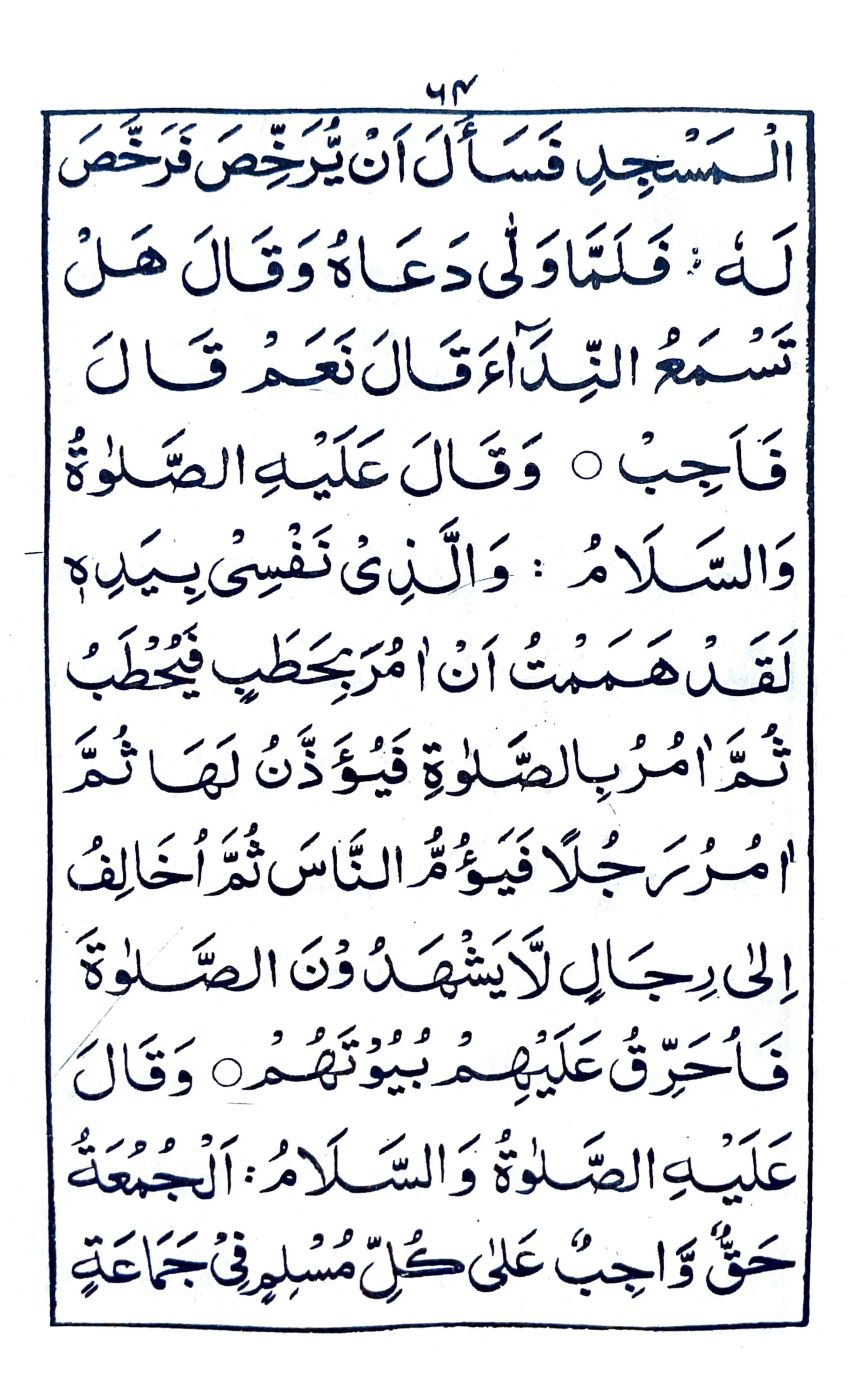 ۶۴
الْمَسْجِدِ فَسَأَلَ اَنْ يُّرَخِّصَ فَرَخَّصَ
لَهٗ : فَلَمَّا وَلّٰى دَعَاهُ وَقَالَ هَلْ
تَسْمَعُ النِّدَآءَ قَالَ نَعَمْ قَالَ
فَاَجِبْ ○ وَقَالَ عَلَيْهِ الصَّلٰوةُ
وَالسَّلَامُ : وَالَّذِىْ نَفْسِىْ بِيَدِهٖ
لَقَدْ هَمَمْتُ اَنْ اٰمُرَ بِحَطَبٍ فَيُحْطَبُ
ثُمَّ اٰمُرُ بِالصَّلٰوةِ فَيُؤَذَّنُ لَهَا ثُمَّ
اٰمُرُ رَجُلًا فَيَؤُمُّ النَّاسَ ثُمَّ اُخَالِفُ
اِلٰى رِجَالٍ لَّا يَشْهَدُوْنَ الصَّلٰوةَ
فَاُحَرِّقُ عَلَيْهِمْ بُيُوْتَهُمْ ○ وَقَالَ
عَلَيْهِ الصَّلٰوةُ وَالسَّلَامُ : اَلْجُمُعَةُ
حَقٌّ وَّاجِبٌ عَلٰى كُلِّ مُسْلِمٍ فِىْ جَمَاعَةٍ